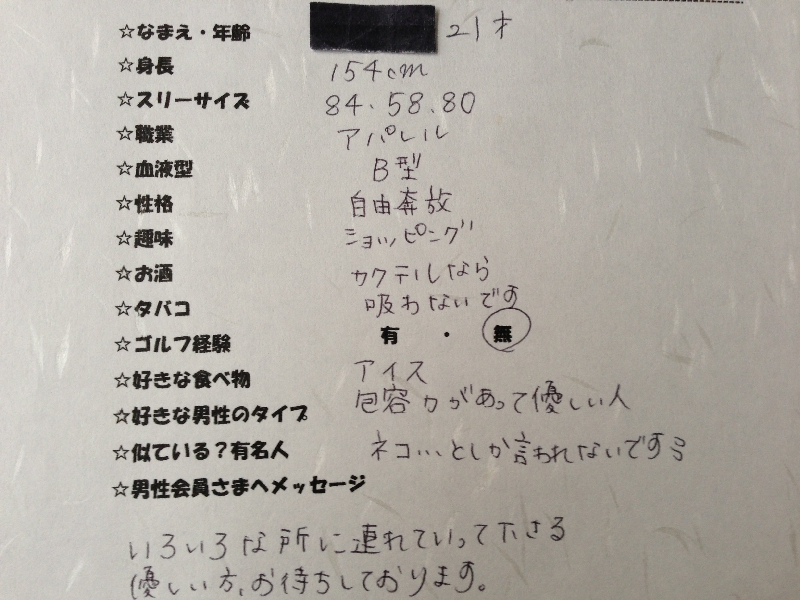 ☆なまえ・年齢 21才
☆身長 154cm
☆スリーサイズ 84、58、80
☆職業 アパレル
☆血液型 B型
☆性格 自由奔放
☆趣味 ショッピング
☆お酒 カクテルなら
☆タバコ 吸わないです
☆ゴルフ経験 有・無
☆好きな食べ物 アイス
☆好きな男性のタイプ 包容力があって優しい人
☆似ている?有名人 ネコ…としか言われないです
☆男性会員さまへメッセージ
いろいろな所に連れていって下さる
優しい方、お待ちしております。